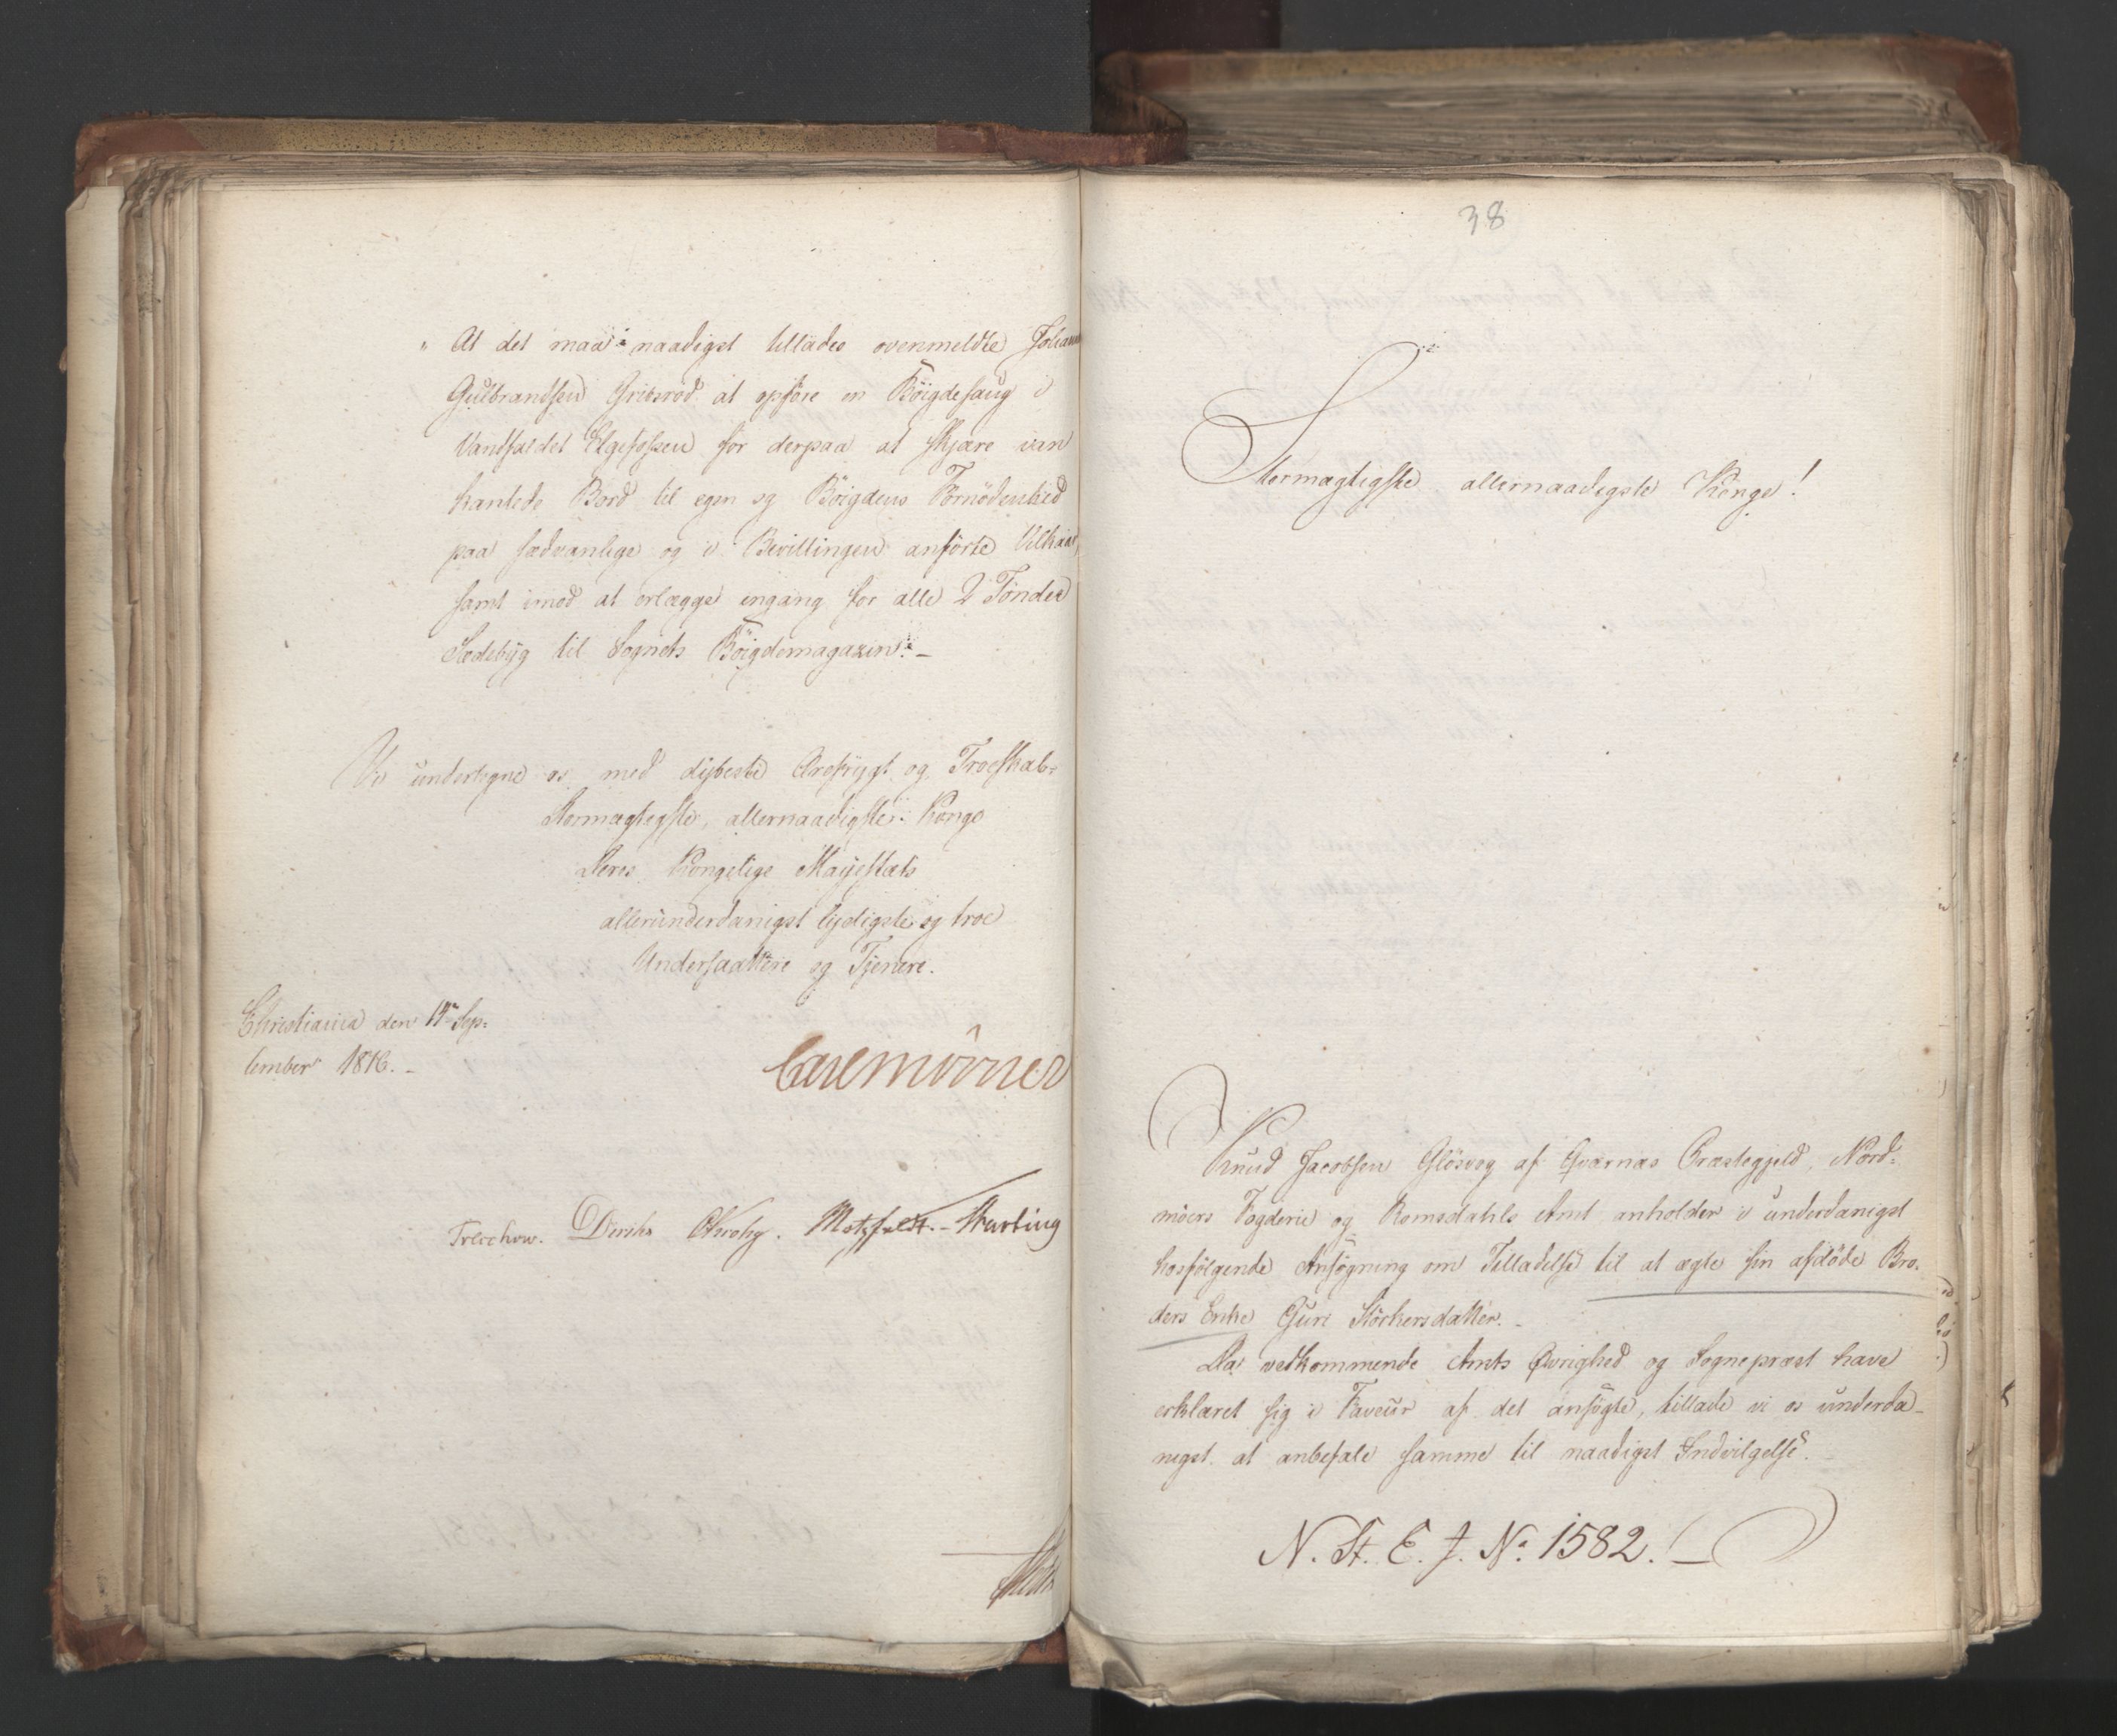 „ At det maa naadigst tillades ovenmeldte Johannes
Gulbrandsen Grisrød at opføre en Bøigdesaug i
Vandfaldet Elgefossen for derpaa at skjære van
kantede Bord til egen og Bøigdens Fornødenhed
paa sædvanlige og i Bevillingen anførte Vilkaar,
samt imod at erlægge engang for alle 2 Tønder
Sædebyg til Sognets Bøigdemagazin. –
Vi undertegne os med dybeste Ærefrygt og Troeskab.
Stormægtigste, allernaadigste Konge
Deres Kongelige Mayestæts
allerunderdanigst lydigste og troe
Undersaattere og Tjenere.
Christiania den 14de Sep-
tember 1816. –
Carl Mörner
Treschow. Diriks Krohg. Motzfeldt. – Størting
38
Stormægtigste allernaadigste Konge!
Knud Jacobsen Glösvog af Qværnæs Præstegjeld, Nord-
möers Fogderie og Romsdahls Amt anholder i underdanigst
hosfølgende Ansøgning om Tilladelse til at ægte sin afdøde Bro-
ders Enke Guri Störkersdatter. –
Da vedkommende Amts Øvrighed og Sognepræst have
erklæret sig i Faveur af det ansøgte, tillade vi os underda-
nigst at anbefale samme til naadigst Indvilgelse.
N. St. E. J. No. 1582. –